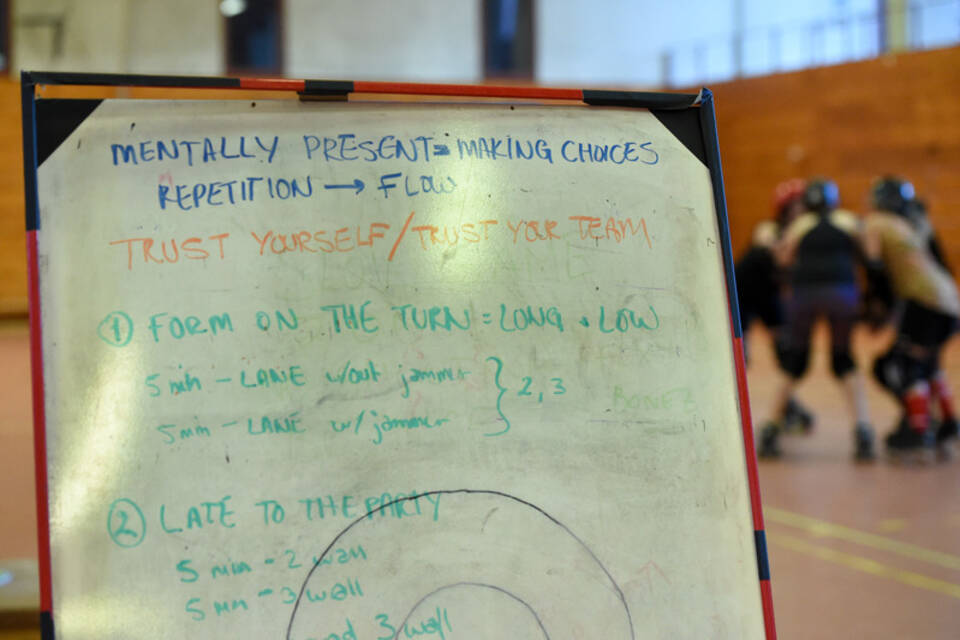 MENTALLY PRESENT = MAKING CHOICES
REPETITION → FLOW
TRUST YOURSELF/TRUST YOUR TEAM.
① FORM ON THE TURN = LONG + LOW
5 min - LANE w/out jammer } 2, 3
5 min - LANE w/ jammer
② LATE TO THE PARTY
5 min - 2 wall
5 min - 3 wall
3 wall